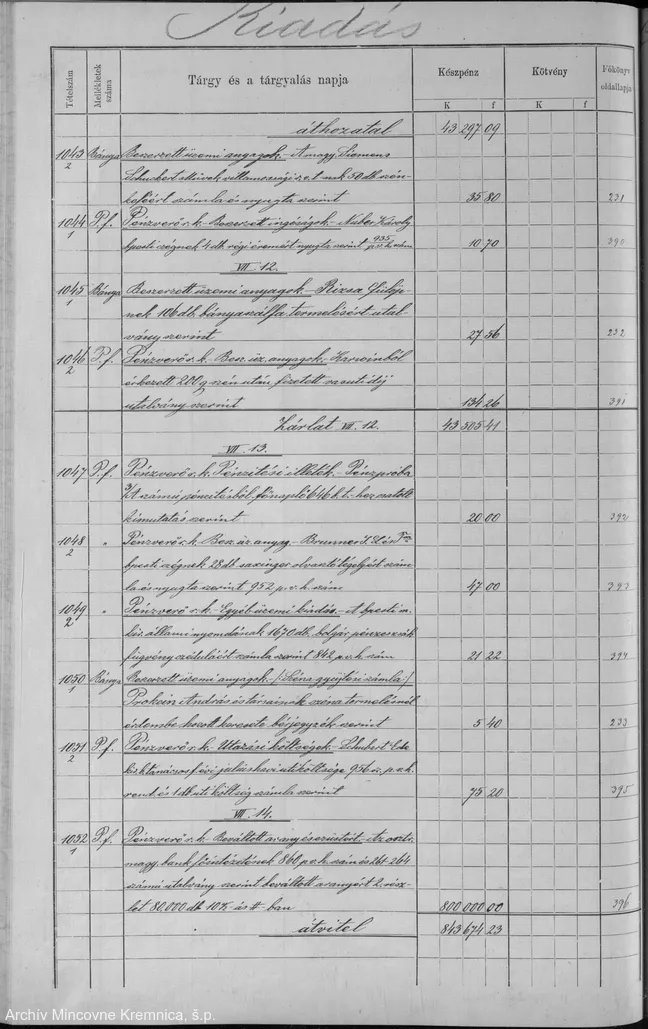 Kiadás
Tételszám
Mellékletek száma
Tárgy és a tárgyalás napja
Készpénz
Kötvény
Főkönyv oldallapja
K f K f
áthozatal 43 297 09
1043 2 Bánya Beszerzett üzemi anyagok. - A magy. Siemens
Schuckert Művek villamossági r.t. nak 50 db szén-
keféért számla és nyugta szerint 35 80 231
1044 1 P.f. Pénzverő r.k. Beszerzett ingóságok. - Nuber Károly
bpesti czégnek 4 db régi éremért nyugta szerint 935 p.v.h. szám 10 70 390
VII. 12.
1045 1 Bánya Beszerzett üzemi anyagok - Rizsa Fülöp-
nek 106 db. bányaszálfa termeléséért utal-
vány szerint 27 56 232
1046 2 P.f. Pénzverő r.k. Besz. üz. anyagok. - Karwinból
érkezett 200 q szén után fizetett vasuti díj
utalvány szerint 134 26 391
Zárlat VII. 12. 43 505 41
VII. 13.
1047 P.f. Pénzverő r.k. Pénzítési illeték. - Pénzpróba
számú pénzítésből fönnapló 646 h.t. hez csatolt
kimutatás szerint 20 00 392
1048 2 " Pénzverő r.k. Besz. üz. anyag. - Brunner
bpesti czégnek 28 db saxinger olvasztó tégelyért szám-
la és nyugta szerint 952 p.v.h. szám 47 00 393
1049 2 " Pénzverő r.k. - Egyéb üzemi kiadás. - A bpesti m.
kir. állami nyomdának 1670 db. bolgár pénzeszsák
függvény czéduláért számla szerint 842 p.v.h. szám 21 22 394
1050 1 Bánya Beszerzett üzemi anyagok. - /: Széna gyűjtési számla :/
Prokein András és társainak széna termelésnél
érdembe hozott kereset bérjegyzék szerint 5 40 233
1051 2 P.f. Pénzverő r.k. Utazási költségek. - Schubert Ede
kir. b. tanácsos f. évi julius havi uti költsége 956 sz. p.v.h.
rend. és 1 db uti költség számla szerint 75 20 395
VII. 14.
1052 1 P.f. Pénzverő r.k. - Beváltott arany és ezüstért. - Az osztr.
magy. bank főintézetének 860 p.v.h. szám és 261-264
számú utalvány szerint beváltott aranyért 2. rész-
let 80.000 db 10 K-ás #-ban 800 000 00 396
átvitel 843 674 23
Archív Mincovne Kremnica, š.p.